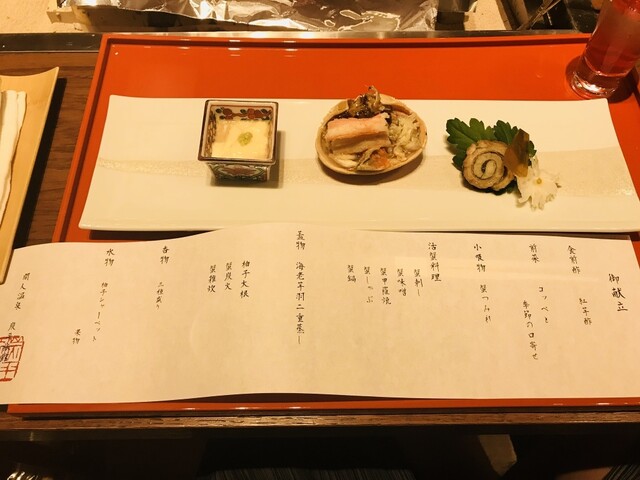 御献立
食前酢
紅子酢
前菜
コッペと
季節の口寄せ
小吸物
蟹つみれ
活蟹料理
蟹刺し
蟹味噌
蟹甲羅焼
蟹しゃぶ
蟹鍋
蒸物 海老芋羽二重蒸し
柚子大根
蟹炭火
蟹雑炊
香物
三種盛り
水物
柚子シャーベット
果物
間人温泉